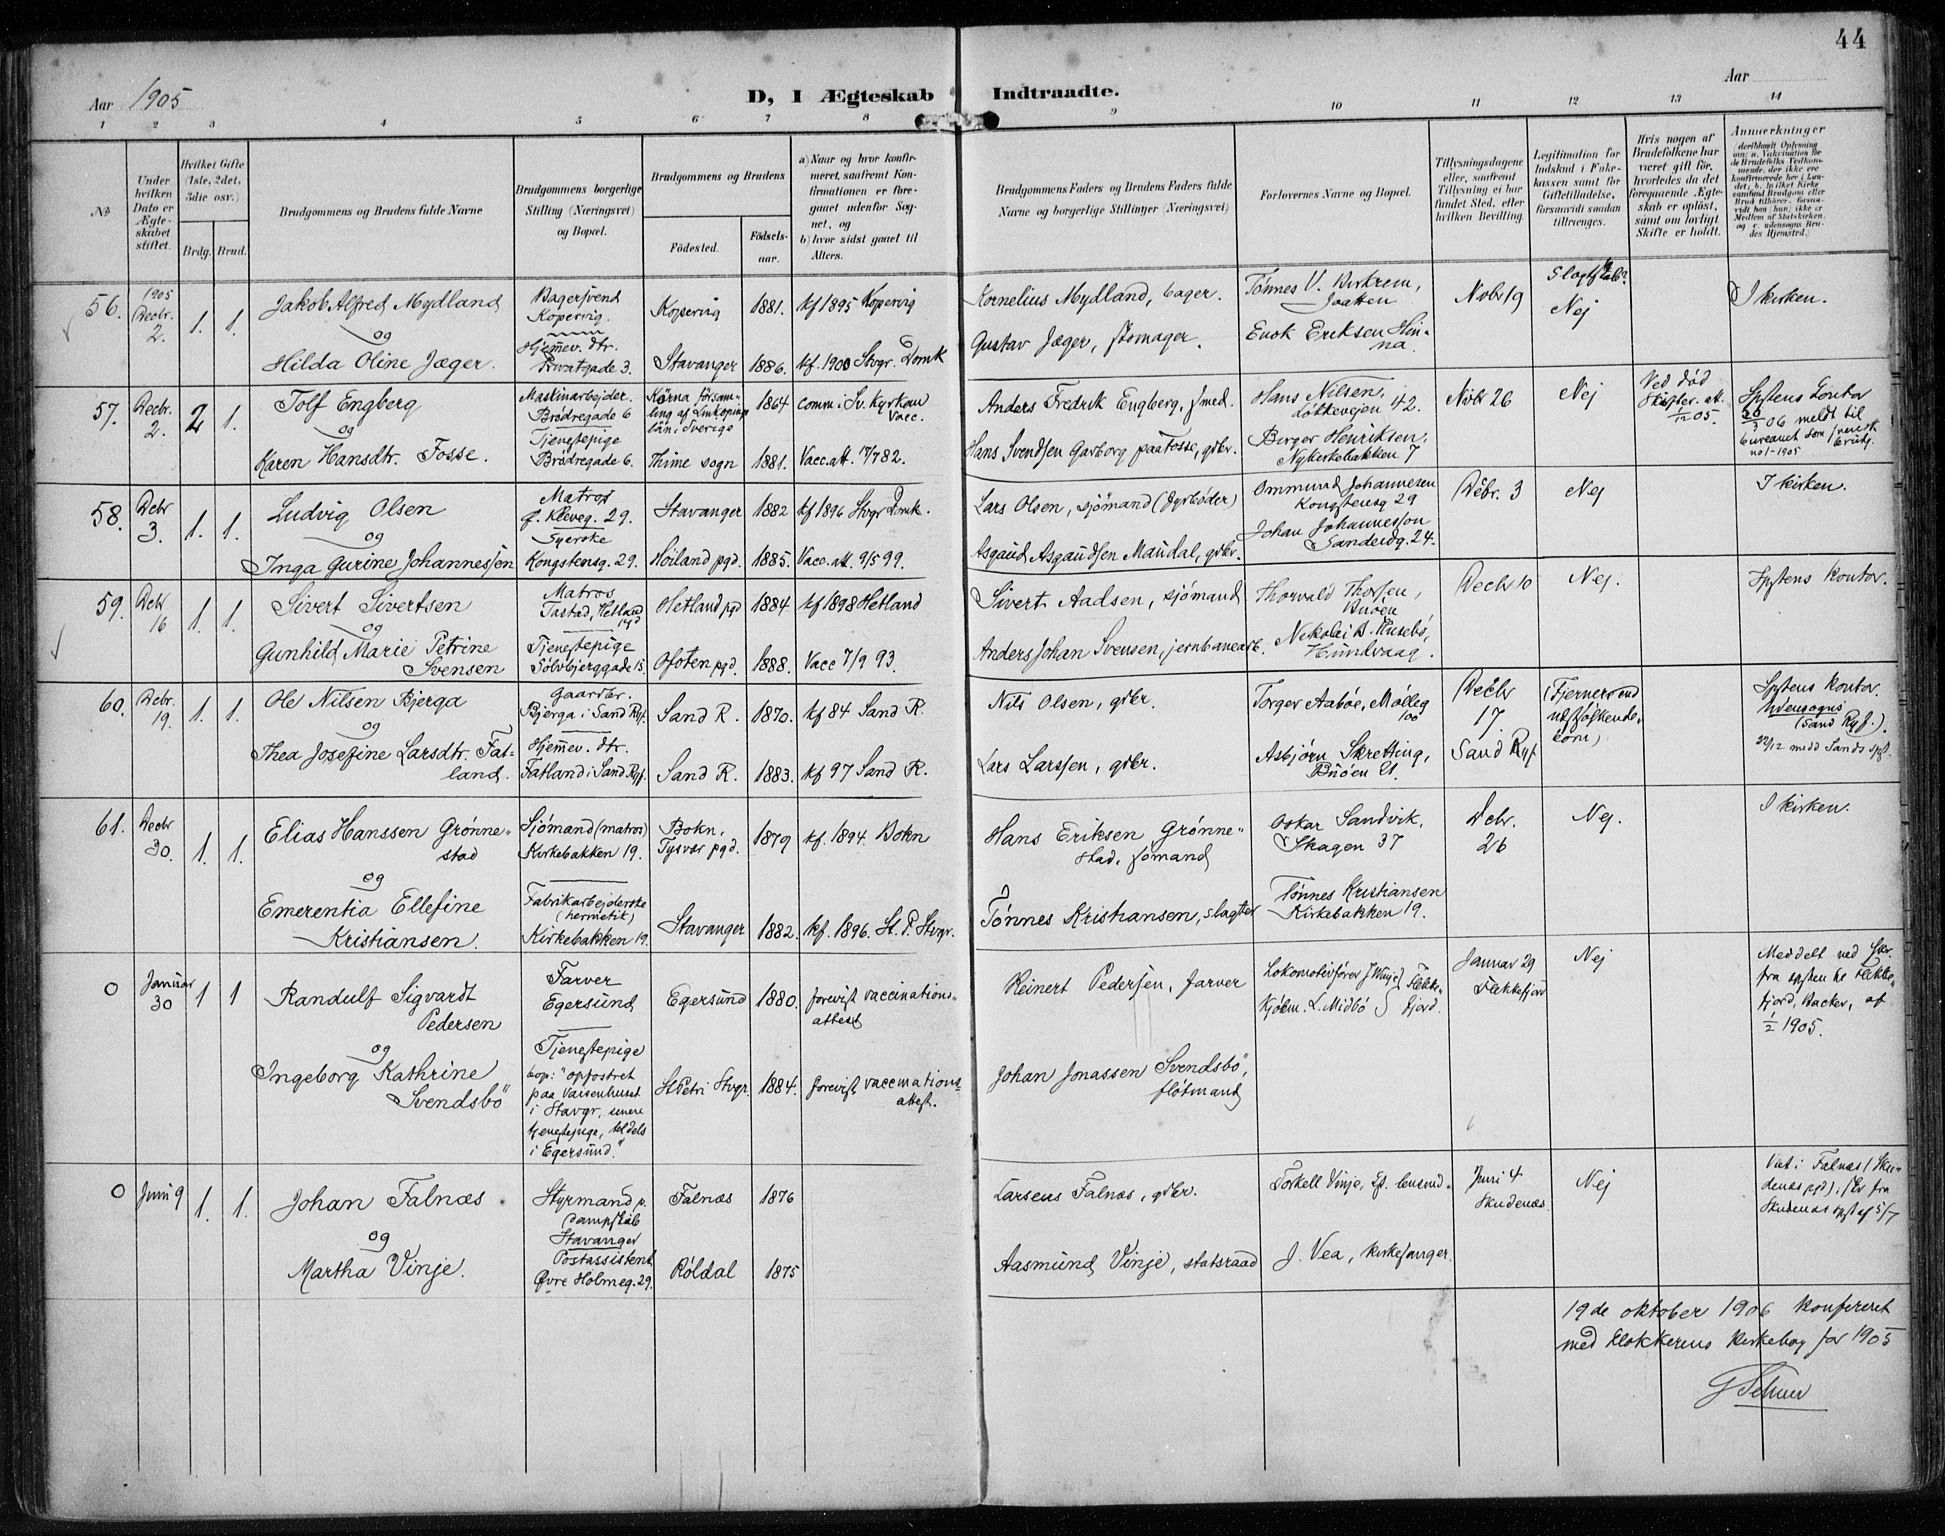 44
Aar 1905
D, I Ægteskab Indtraadte.
Aar
1 2 3 4 5 6 7 8 9 10 11 12 13 14
No
Under hvilken Dato er Ægteskabet stiftet.
Hvilket Gifte (1ste, 2det, 3die osv.)
Brdg. Brud.
Brudgommens og Brudens fulde Navne
Brudgommens borgerlige Stilling (Næringsvei) og Bopæl.
Brudgommens og Brudens
Födested.
Födsels-aar.
a) Naar og hvor konfirmeret, saafremt Konfirmationen er foregaaet udenfor Sognet, og
b) hvor sidst gaaet til Alters.
Brudgommens Faders og Brudens Faders fulde Navne og borgerlige Stillinger (Næringsvei)
Forlovernes Navne og Bopæl.
Tillysningsdagene eller, saafremt Tillysning ei har fundet Sted, efter hvilken Bevilling.
Legitimation for Indskud i Enkekassen samt for Giftetilladelse, forsaavidt saadan tiltrænges.
Hvis nogen af Brudefolkene har været gift för, hvorledes da det foregaaende Ægteskab er oplöst, samt om lovligt Skifte er holdt.
Anmærkninger
56.
1905
Decbr.
2.
1. 1.
Jakob Alfred Mydland
og
Hilda Oline Jæger.
Bagersvend
Kopervig.
Hjemmev. dtr.
Privatgade 3.
Kopervig 1881. kf 1895 Kopervig
Stavanger 1886. kf. 1900 Stvgr. Domk
Kornelius Mydland, bager.
Gustav Jæger, skomager.
Tönnes V. Birkrem,
Jaatten
Enok Eriksen Hinna.
Nobr 19
Nej
I kirken.
57.
Decbr.
2.
2 1.
Tolf Engberg
og
Karen Hansdtr. Fosse.
Maskinarbejder.
Brödregade 6
Tjenestepige
Brödregade 6.
Kärna församling af Linköpings
län, i Sverige
1864 comm i Sv. Kyrkan
Vacc.
Thime sogn 1881. Vacc. att. 17/7 82.
Anders Fredrik Engberg, smed.
Hans Svendsen Garborg paa Fosse, gdbr.
Hans Nilsen,
Lökkevejen 42.
Birger Henriksen,
Nykirkebakken 7
Nobr 26
Nej
Ved død
Skifter. att.
1/12 05.
Spstens kontor
20/3 06 meldt til
bureauet som svensk
brudg.
no 1-1905
58.
Debr
3.
1. 1.
Ludvig Olsen
og
Inga Gurine Johannessen
Matros
f. Kleveg. 29.
Syerske
Kongstensg. 29.
Stavanger 1882 kf 1896 Stvgr Domk.
Höiland pgd. 1885. Vacc. att. 9/5 99.
Lars Olsen, sjömand (fyrböder)
Asgaud Asgaudsen Maudal, gdbr.
Ommund Johannesen
Kongstensg 29
Johan Johannesson
Sandeidg. 24.
Debr. 3
Nej
I kirken.
59.
Debr
16
1. 1.
Sivert Sivertsen
og
Gunhild Marie Petrine
Svensen
Matros
Tastad, Hetland
pgd
Tjenestepige
Sölvbjerggade 15.
Hetland pgd 1884 kf 1898 Hetland
Ofoten pgd. 1888. Vacc 7/9 93.
Sivert Aadsen, sjömand
Anders Johan Svensen, jernbanearb.
Thorvald Thorsen,
Buöen
Nikolei B. Husebö,
Hundvaag.
Decbr 10
Nej.
Spstens kontor.
60.
Debr.
19.
1. 1.
Ole Nilsen Bjerga
og
Thea Josefine Larsdtr. Fatland.
Gaardbr.
Bjerga i Sand Ryf.
Hjemmev. dtr.
Fatland i Sand Ryf.
Sand R. 1870. kf 84 Sand R.
Sand R. 1883. kf 97 Sand R.
Nils Olsen, gdbr.
Lars Larssen, gdbr.
Torger Aaböe, Mölleg
100
Asbjörn Skretting,
Buöen
Decbr
17
Sand Ryf
Spstens kontor.
Udensogns
(Sand Ryf.).
22/12 medd Sands spst.
61.
Decbr
30.
1. 1.
Elias Hanssen Grönnestad
og
Emerentia Ellefine
Kristiansen.
Sjömand (matros)
Kirkebakken 19.
Fabrikarbejderske
(hermetik)
Kirkebakken 19.
Bokn,
Tysvær pgd.
1879 kf. 1894. Bokn
Stavanger 1882. kf. 1896. St. P. Stvgr.
Hans Eriksen Grönnestad, sömand
Tönnes Kristiansen, slagter
Oskar Sandvik,
Skagen 37
Tönnes Kristiansen
Kirkebakken 19.
Debr.
26
Nej.
I kirken.
0
Januar
30
1 1
Randulf Sigvardt
Pedersen
og
Ingeborg Kathrine
Svendsbö
Farver
Egersund
Tjenestepige
bop: "opfostret
paa Vaisenhuset
i Stavgr, senere
tjenestepige, tildels
i Egersund."
Egersund 1880. forevist vaccinations-
attest
St Petri Stvgr. 1884. forevist vaccinations-
attest.
Reinert Pedersen, farver
Johan Jonassen Svendsbö,
flötmand
Lokomotivförer J. Vinje
Kjöbm. L. Midbö
Flekkefjord.
Januar 29
Flekkefjord
Nej
Meddelt ved skr.
fra spsten til Flekkefjord, Backer, af
1/2 1905.
0
Juni 9
1. 1.
Johan Falnæs
og
Martha Vinje.
Styrmand p.
dampskib
Stavanger
Postassistent
Øvre Holmeg. 29.
Falnæs 1876
Röldal 1875
Larsens Falnæs, gdbr.
Aasmund Vinje, statsraad
Torkell Vinje,
J. Vea, kirkesanger.
Juni 4
Skudenæs.
Nej
Viet i Falnæs (Skudenæs pgd),
Skudenæs spst af 5/7
19de oktober 1906 konfereret
med klokkerens kirkebog for 1905